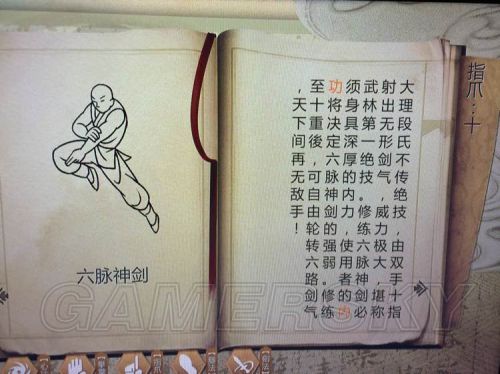 六脉神剑
大理段氏不传绝技，由双手十指
射出无形剑气，威力极大，堪称
武林第一绝技。修练六脉神剑必
须身具深厚的内力，使用者的内
功将决定六脉神剑的强弱。修练
至十重後，可自由轮转六路剑气
，天下間再无敌手！
指爪：十
GAMERSKY